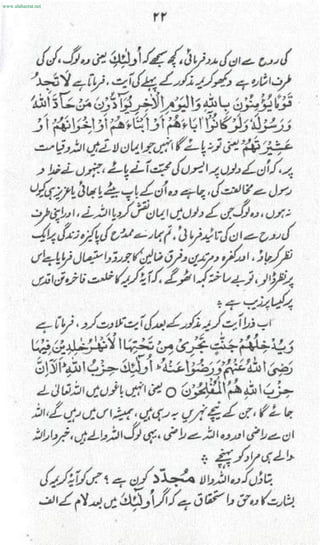 www.alahazrat.net
۲۲
کی روح سے ان کی مدد فرمائی، کچھ سمجھے کہ أُولٰئِكَ یعنی وہ لوگ، کن کی
طرف اشارہ ہے دیکھو کریمہ مذکور کے پہلے کی آیت، فرماتا ہے لَا تَجِدُ
قَوْمًا يُؤْمِنُوْنَ بِاللّٰهِ وَالْيَوْمِ الْاٰخِرِ يُوَآدُّوْنَ مَنْ حَآدَّ اللّٰهَ
وَرَسُوْلَهٗ وَلَوْ كَانُوْٓا اٰبَآءَهُمْ اَوْ اَبْنَآءَهُمْ اَوْ اِخْوَانَهُمْ اَوْ
عَشِيْرَتَهُمْ یعنی تو نہ پائے گا انہیں جو ایمان لاتے ہیں اللہ و قیامت
پر، کہ اُن کے دلوں پر ایسوں کی محبت آنے پائے، جنہوں نے خدا و
رسول سے مخالفت کی، چاہے وہ اُن کے باپ بیٹے یا بھائی یا عزیز ہی کیوں
نہ ہوں، وہ لوگ جن کے دلوں میں ایمان نقش کر دیا اللہ نے، اور اپنی طرف
کی روح سے ان کی تائید فرمائی، تم ہمارے ممدوح کی پاکیزہ زندگی پر ایک
نظر کر جاؤ، اور کفرہ و مرتدین و فرق ضالین کا جو رد و استیصال فرمایا ہے اس
پر نظر ڈالو، تو بے ساختہ کہہ اٹھو گے، کہ آیۂ کریمہ کا خلعت فاخرہ تن اقدس
پر کیسا پر زیب ہے ؛
اب ذرا آیت کریمہ مذکور کے بعد کی آیت تلاوت کرو، فرماتا ہے
وَيُدْخِلُهُمْ جَنّٰتٍ تَجْرِىْ مِنْ تَحْتِهَا الْاَنْهٰرُ خٰلِدِيْنَ فِيْهَا
رَضِىَ اللّٰهُ عَنْهُمْ وَرَضُوْا عَنْهُ اُولٰئِكَ حِزْبُ اللّٰهِ اَلَآ اِنَّ
حِزْبَ اللّٰهِ هُمُ الْمُفْلِحُوْنَ ○ یعنی انہیں باغوں میں اللہ تعالیٰ لے
جائے گا، جن کے نیچے نہریں بہ رہی ہیں، ہمیشہ اس میں رہیں گے، اللہ
ان سے راضی اور وہ اللہ سے راضی، یہی لوگ اللہ والے ہیں، خبردار اللہ
والے ہی مراد کو پہنچے ؛
بتاؤں کہ وہ اللہ والا مجدد کون ہے؟ جس کو آیۂ کریمہ کی
بشارت کا وہ حق و استحقاق ہے کہ اگر أُولٰئِكَ میں بعد لام کے الف